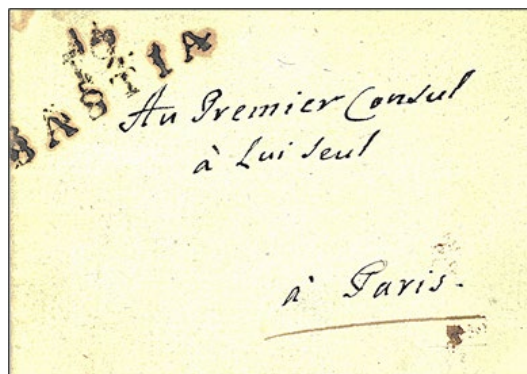 19
BASTIA
Au Premier Consul
à Lui Seul
à Paris.